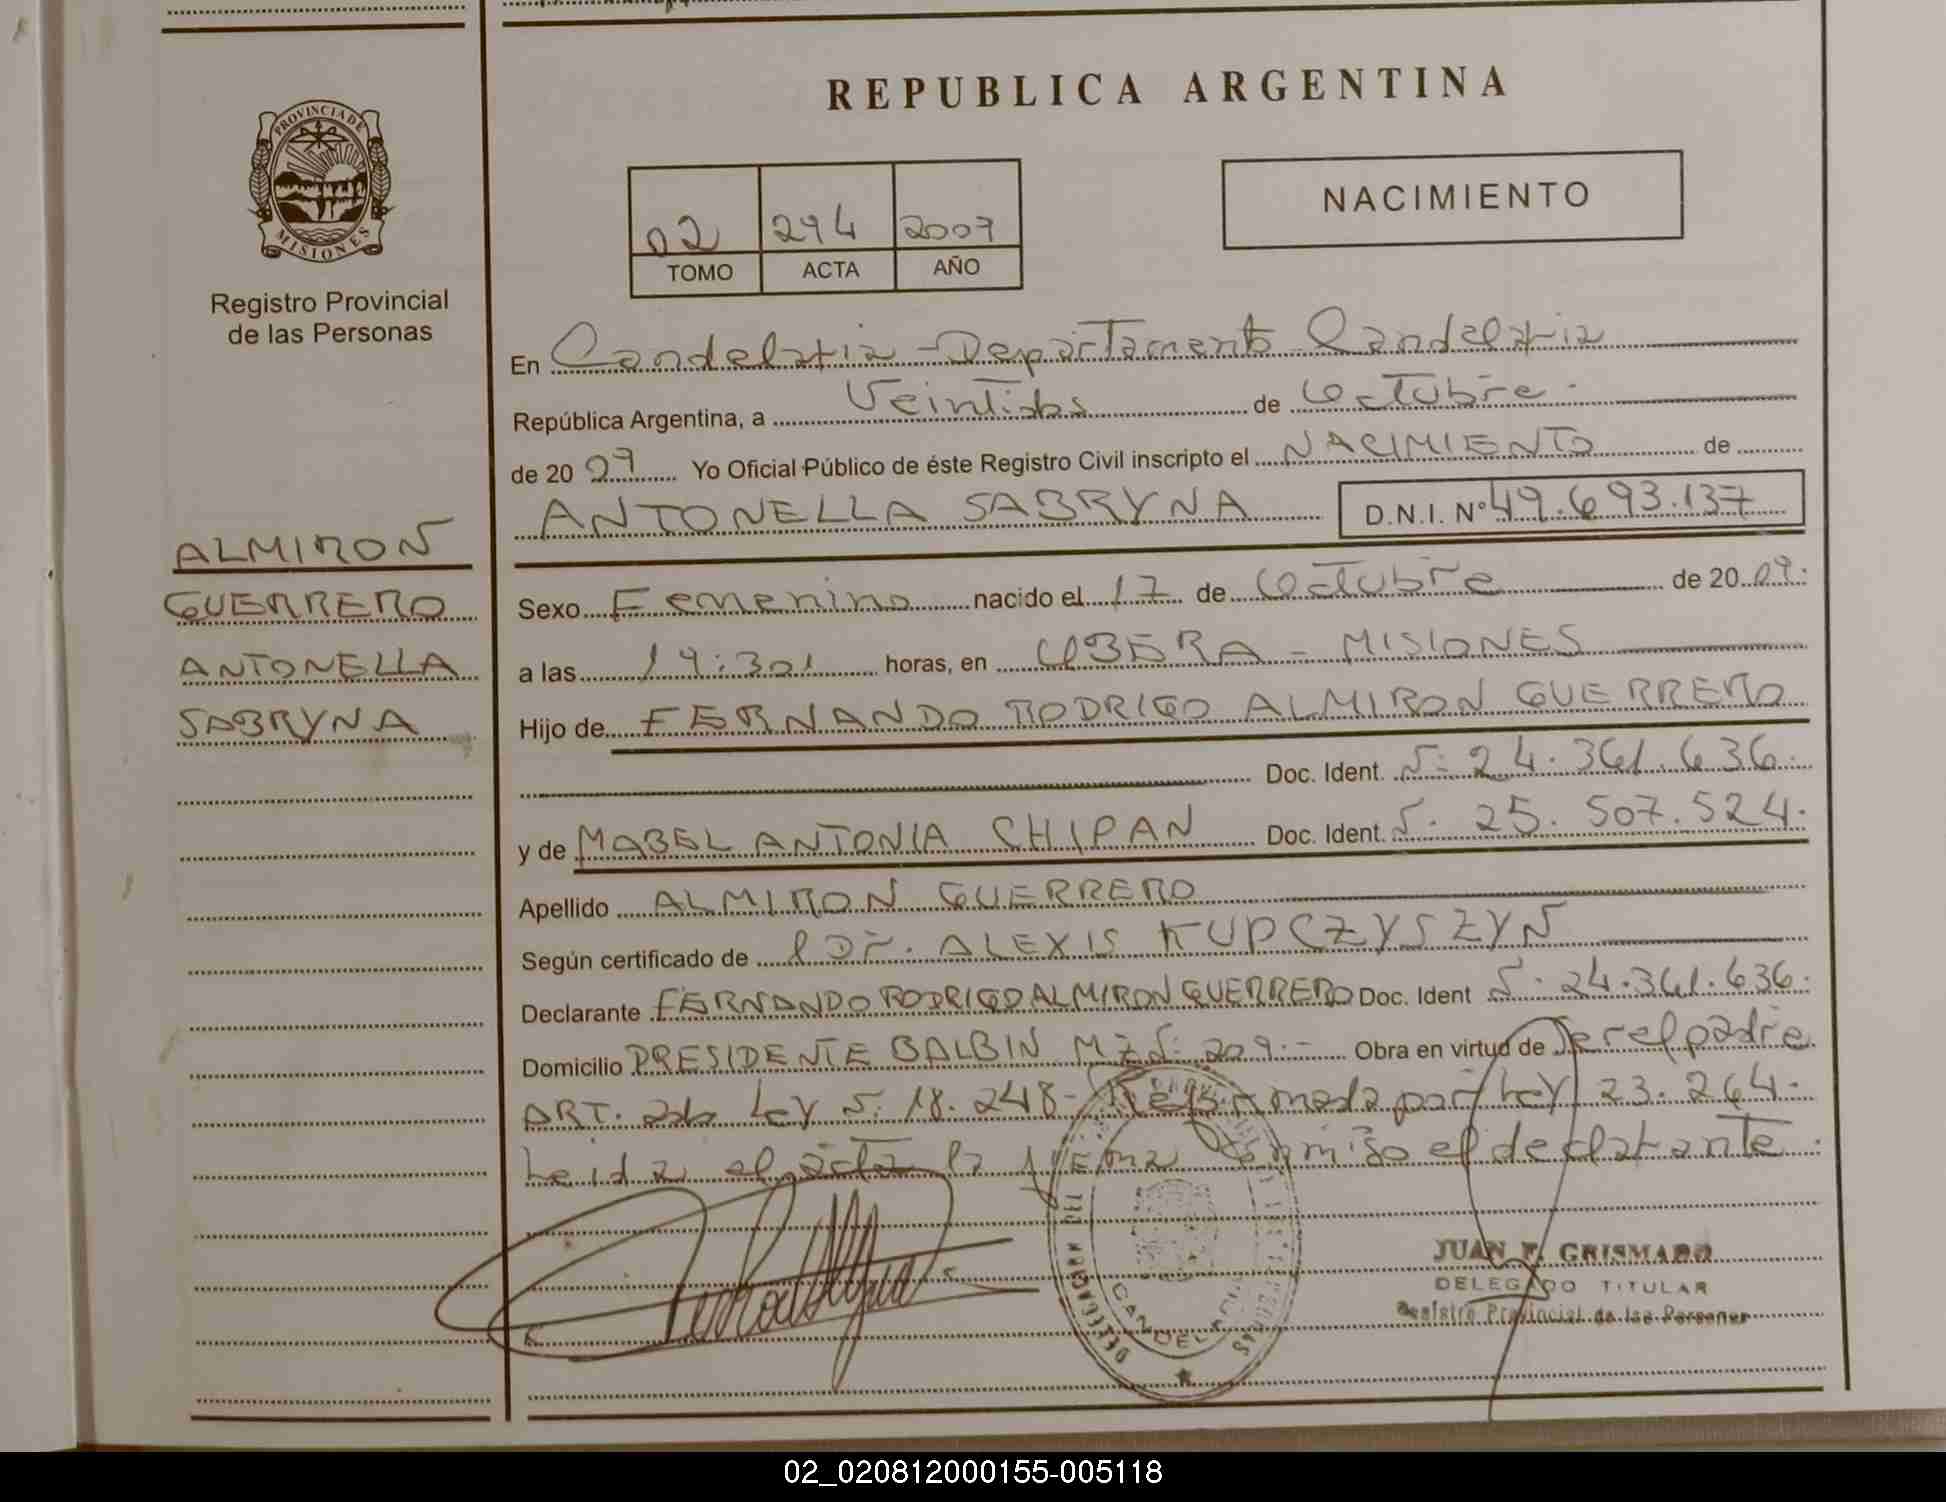 REPUBLICA ARGENTINA
PROVINCIA DE MISIONES
Registro Provincial
de las Personas
02 294 2009
TOMO ACTA AÑO
NACIMIENTO
En Candelaria - Departamento Candelaria
República Argentina, a Veintidos de Octubre
de 2009 Yo Oficial Público de éste Registro Civil inscripto el NACIMIENTO de
ANTONELLA SABRYNA D.N.I. Nº 49.693.137
ALMIRON
GUERRERO
ANTONELLA
SABRYNA
Sexo Femenino nacido el 17 de Octubre de 2009.
a las 19:30 horas, en OBERA - MISIONES
Hijo de FERNANDO RODRIGO ALMIRON GUERRERO
Doc. Ident. N: 24.361.636.
y de MABEL ANTONIA CHIPAN Doc. Ident. N. 25.507.524.
Apellido ALMIRON GUERRERO
Según certificado de Dr. ALEXIS KUPCZYSZYN
Declarante FERNANDO RODRIGO ALMIRON GUERRERO Doc. Ident N. 24.361.636.
Domicilio PRESIDENTE BALBIN MZ N: 209.- Obra en virtud de Ser el padre
ART. 2do Ley N: 18.248- Reformada por Ley 23.264.
Leida el acta la firma el declarante.
DELEGACION DEL
CANDELARIA
JUAN F. GRISMADO
DELEGADO TITULAR
Registro Provincial de las Personas
02_020812000155-005118